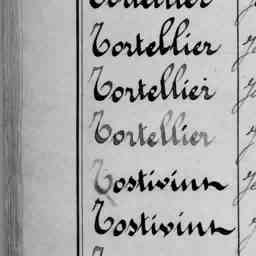 Tortellier
Tortellier
Tortellier
Tortellier
Tostivint
Tostivint